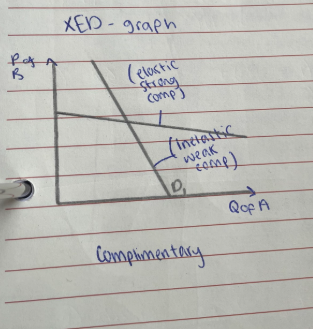 XED - graph
P of
B
(elastic
strong
comp)
(Inelastic
weak
comp)
D,
Q of A
Complimentary